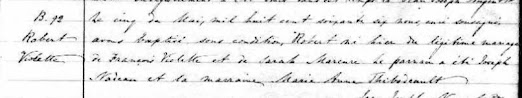 B. 92
Robert
Violette
Le cinq de Mai, mil huit cent soixante six nous, curé soussigné
avons baptisé sous condition, Robert né hier du légitime mariage
de François Violette et de Sarah Mercure. Le parrain a été Joseph
Nadeau et la marraine Marie Anne Thibodeault